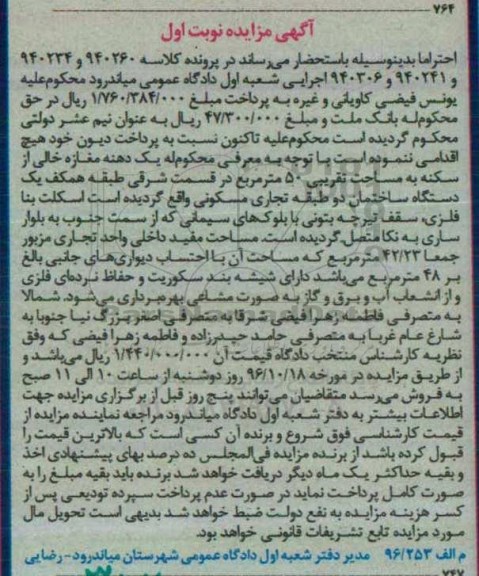 ۷۶۴
آگهی مزایده نوبت اول
احتراما بدینوسیله باستحضار می‌رساند در پرونده کلاسه ۹۴۰۲۶۰ و ۹۴۰۲۳۴
و ۹۴۰۲۴۱ و ۹۴۰۳۰۶ اجرایی شعبه اول دادگاه عمومی میاندرود محکوم‌علیه
یونس فیضی کاویانی و غیره به پرداخت مبلغ ۱/۷۶۰/۳۸۴/۰۰۰ ریال در حق
محکوم‌له بانک ملت و مبلغ ۴۷/۳۰۰/۰۰۰ ریال به عنوان نیم عشر دولتی
محکوم گردیده است محکوم‌علیه تاکنون نسبت به پرداخت دیون خود هیچ
اقدامی ننموده است با توجه به معرفی محکوم‌له یک دهنه مغازه خالی از
سکنه به مساحت تقریبی ۵۰ مترمربع در قسمت شرقی طبقه همکف یک
دستگاه ساختمان دو طبقه تجاری مسکونی واقع گردیده است اسکلت بنا
فلزی، سقف تیرچه بتونی با بلوک‌های سیمانی که از سمت جنوب به بلوار
ساری به نکا متصل گردیده است. مساحت مفید داخلی واحد تجاری مزبور
جمعا ۴۲/۲۳ مترمربع که مساحت آن با احتساب دیواری‌های جانبی بالغ
بر ۴۸ مترمربع می‌باشد دارای شیشه بند سکوریت و حفاظ نرده‌ای فلزی
و از انشعاب آب و برق و گاز به صورت مشاعی بهره‌برداری می‌شود. شمالا
به متصرفی فاطمه زهرا فیضی شرقا به متصرفی اصغر بزرگ نیا جنوبا به
شارع عام غربا به متصرفی حامد حیدرزاده و فاطمه زهرا فیضی که وفق
نظریه کارشناس منتخب دادگاه قیمت آن ۱/۴۴۰/۰۰۰/۰۰۰ ریال می‌باشد و
از طریق مزایده در مورخه ۹۶/۱۰/۱۸ روز دوشنبه از ساعت ۱۰ الی ۱۱ صبح
به فروش می‌رسد متقاضیان می‌توانند پنج روز قبل از برگزاری مزایده جهت
اطلاعات بیشتر به دفتر شعبه اول دادگاه میاندرود مراجعه نماینده مزایده از
قیمت کارشناسی فوق شروع و برنده آن کسی است که بالاترین قیمت را
قبول کرده باشد از برنده مزایده فی‌المجلس ده درصد بهای پیشنهادی اخذ
و بقیه حداکثر یک ماه دیگر دریافت خواهد شد برنده باید بقیه مبلغ را به
صورت کامل پرداخت نماید در صورت عدم پرداخت سپرده تودیعی پس از
کسر هزینه مزایده به نفع دولت ضبط خواهد شد بدیهی است تحویل مال
مورد مزایده تابع تشریفات قانونی خواهد بود.
م الف ۹۶/۲۵۳ مدیر دفتر شعبه اول دادگاه عمومی شهرستان میاندرود-رضایی
۷۴۷